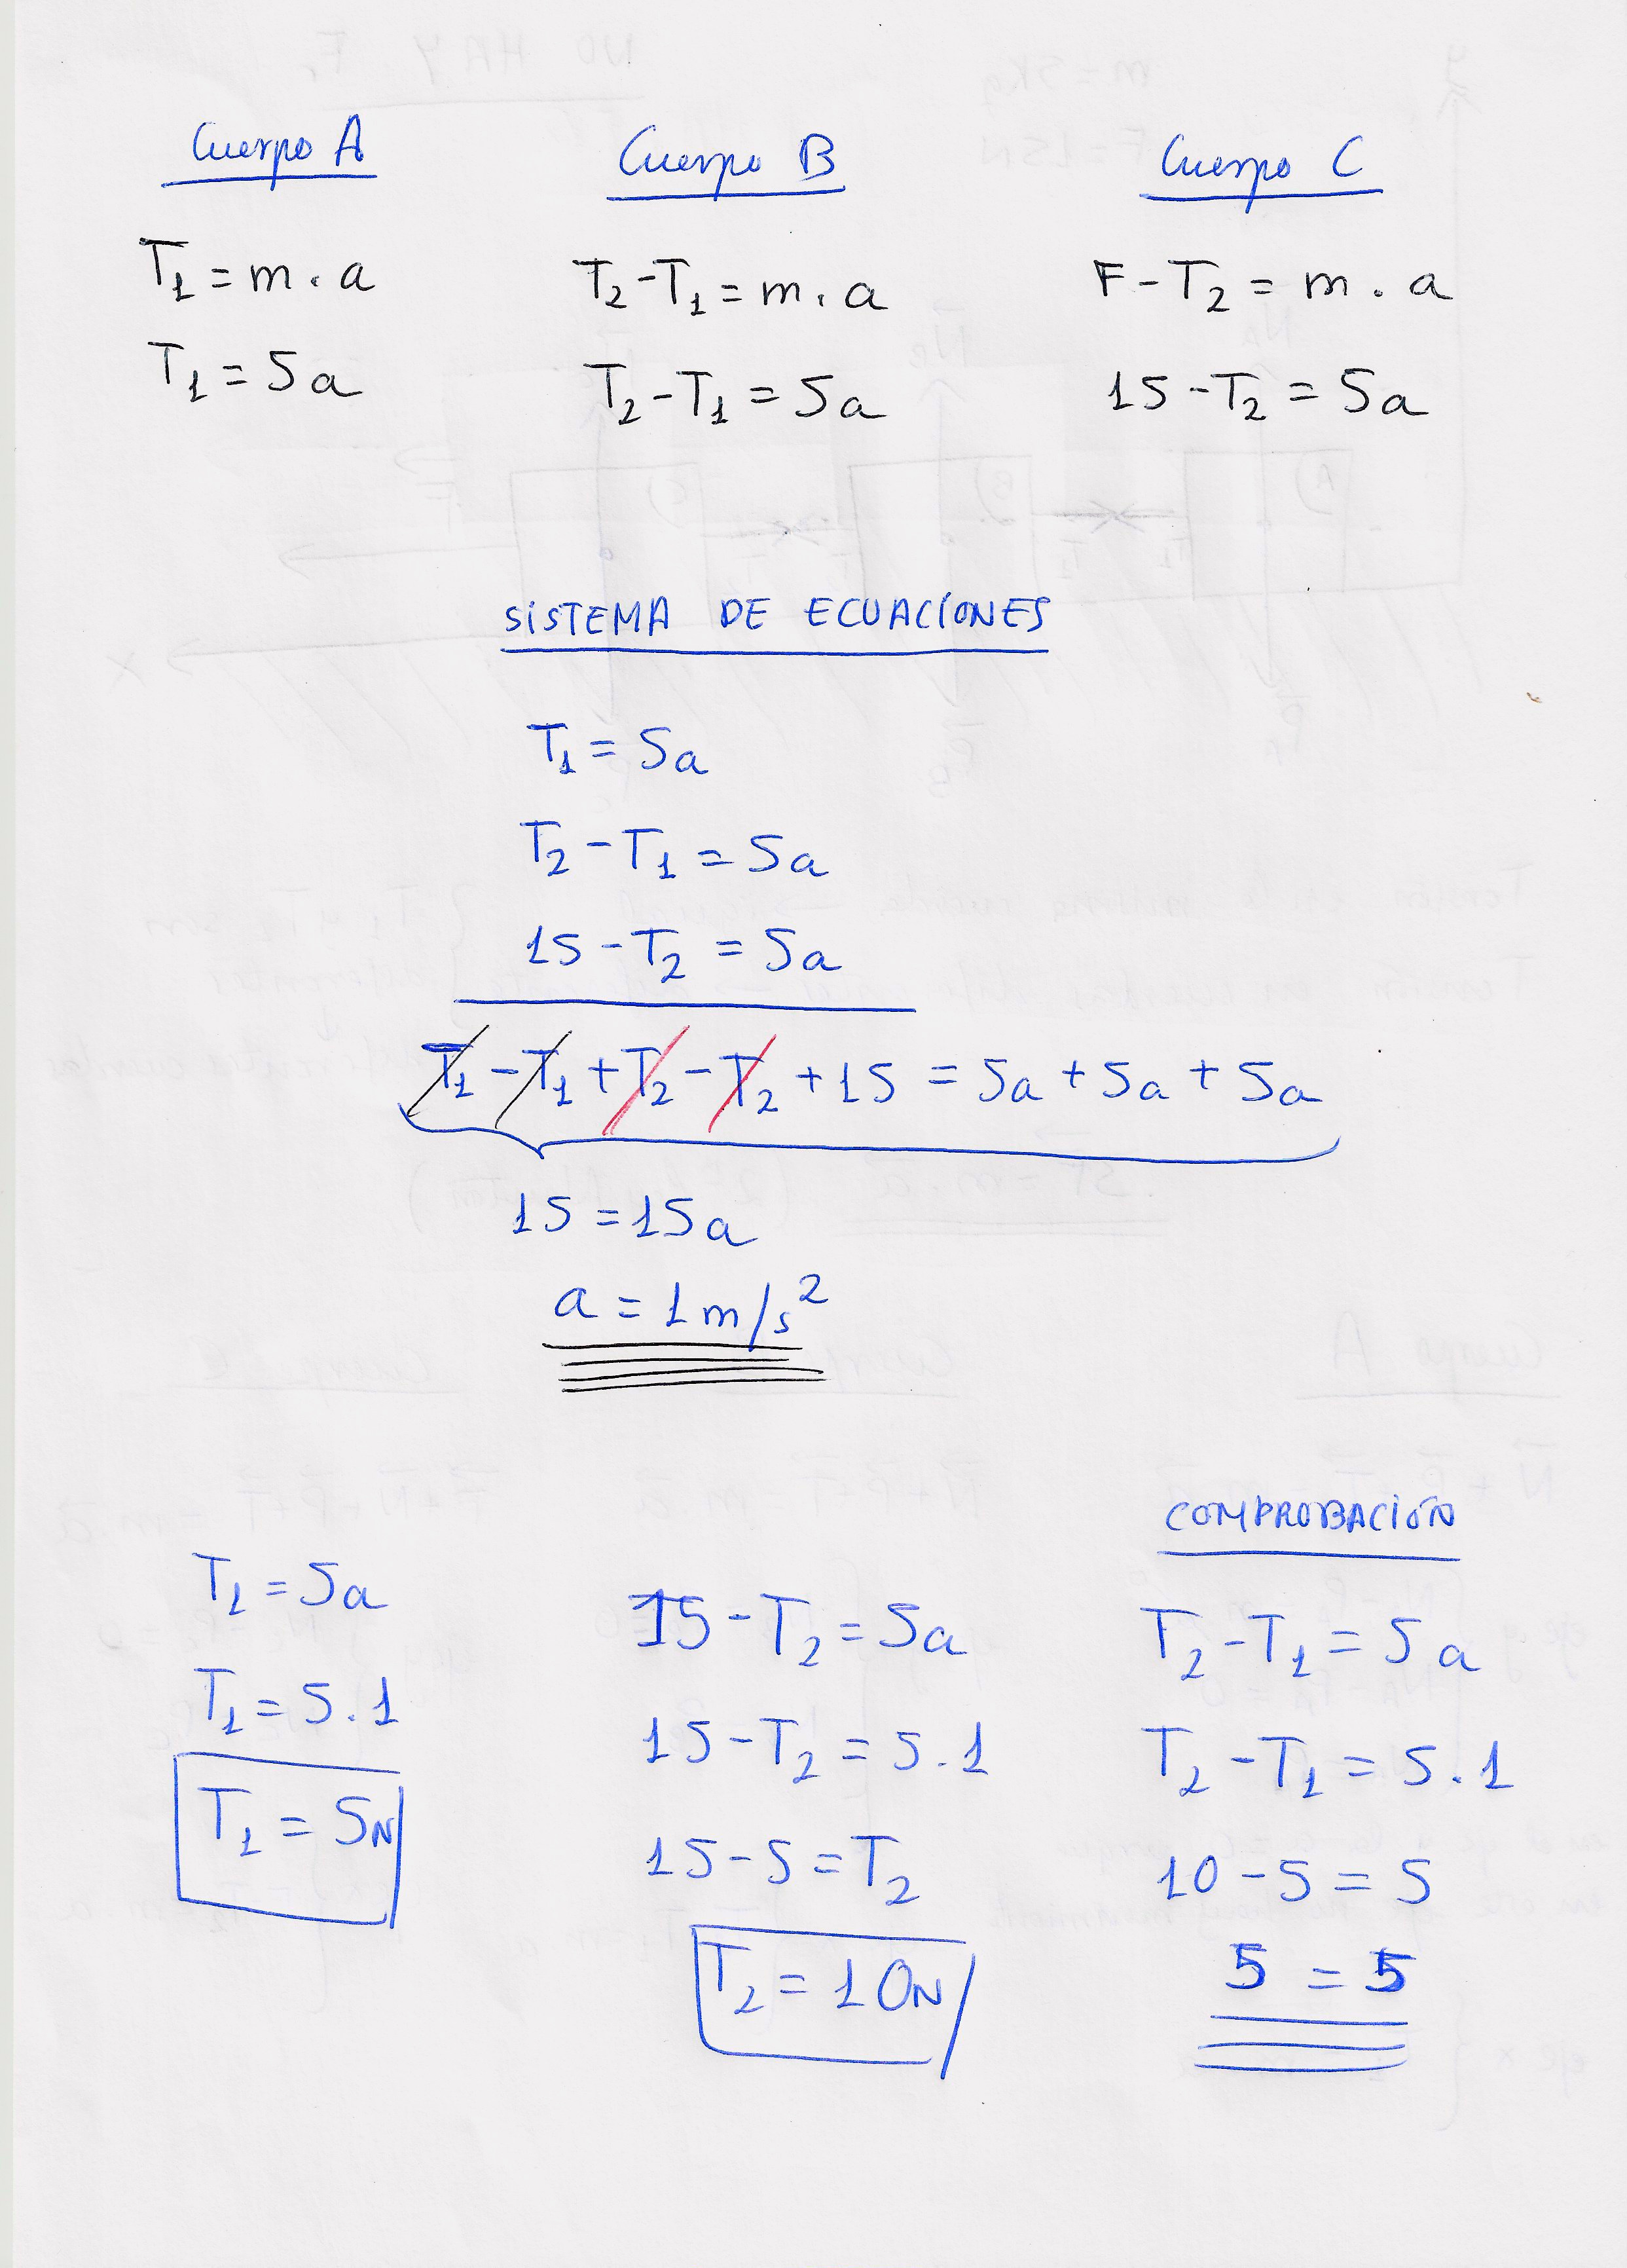 Cuerpo A
T₁ = m . a
T₁ = 5a
Cuerpo B
T₂ - T₁ = m . a
T₂ - T₁ = 5a
Cuerpo C
F - T₂ = m . a
15 - T₂ = 5a
SISTEMA DE ECUACIONES
T₁ = 5a
T₂ - T₁ = 5a
15 - T₂ = 5a
T₁ - T₁ + T₂ - T₂ + 15 = 5a + 5a + 5a
15 = 15a
a = 1 m/s²
T₁ = 5a
T₁ = 5 . 1
T₁ = 5N
15 - T₂ = 5a
15 - T₂ = 5 . 1
15 - 5 = T₂
T₂ = 10N
COMPROBACIÓN
T₂ - T₁ = 5a
T₂ - T₁ = 5 . 1
10 - 5 = 5
5 = 5